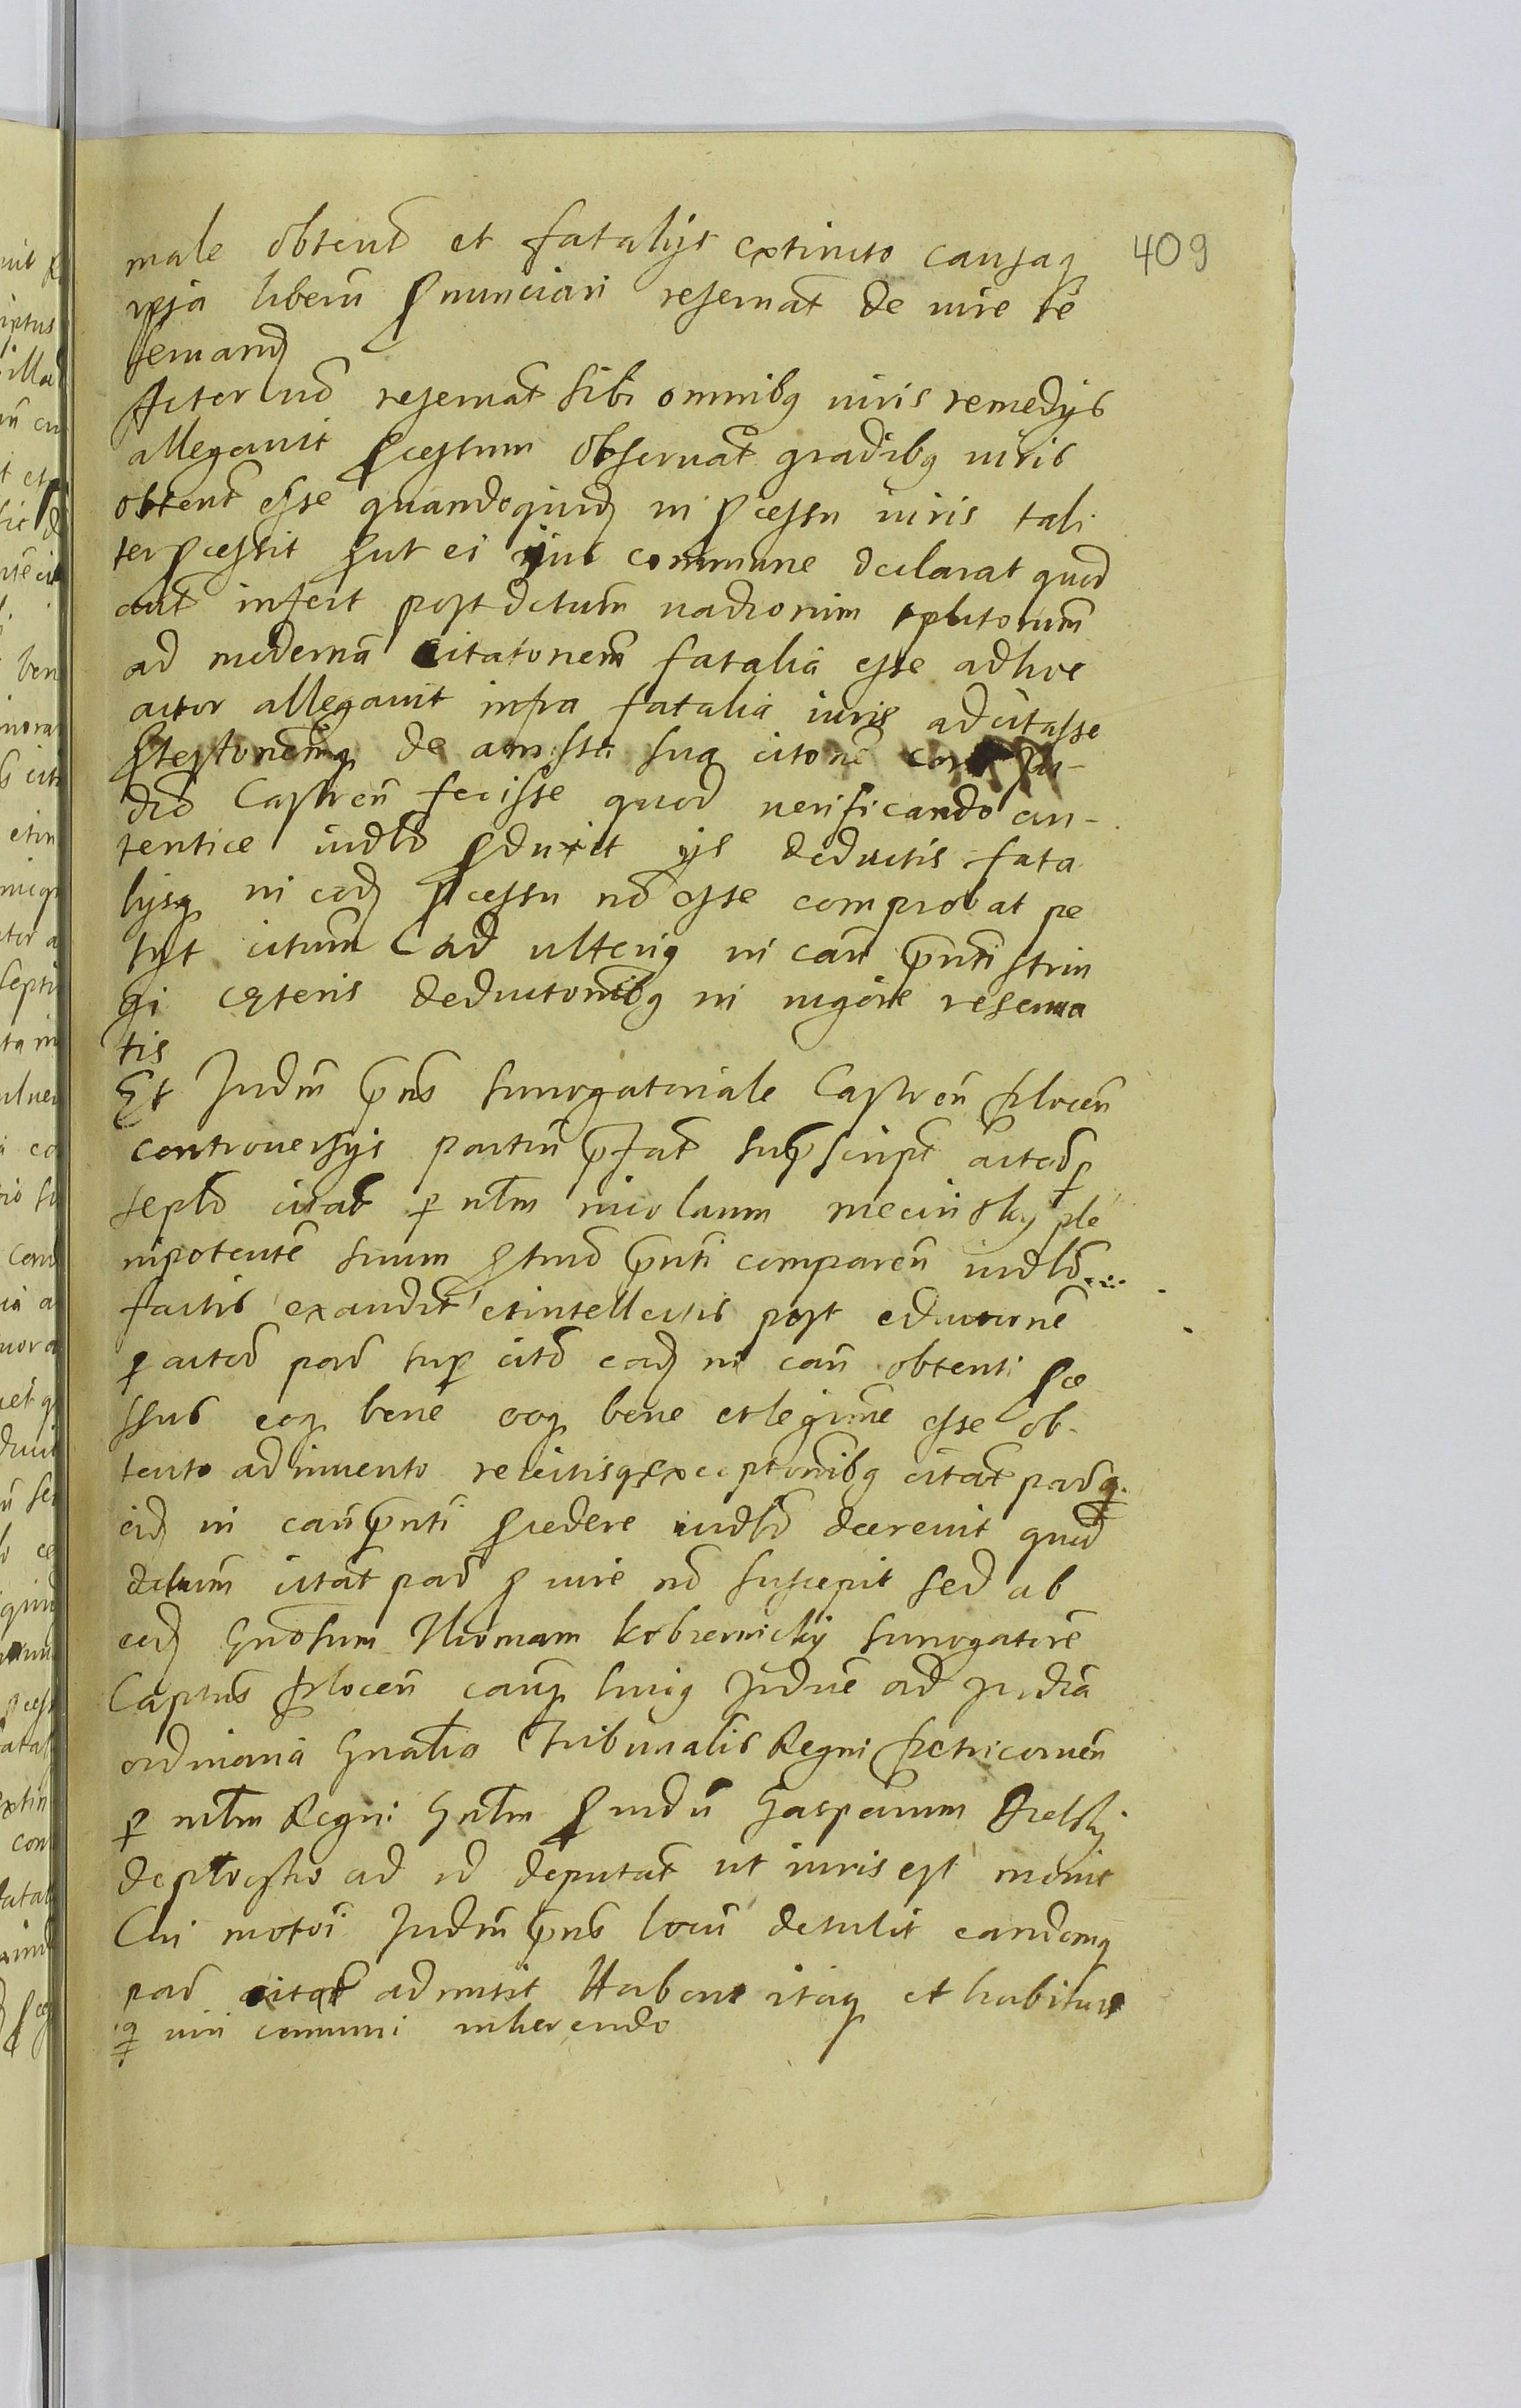 409
male obtent et fatalijs extincto causaq
ipsa liberu pnunciari reseruat de iure re
seruand
Actor uo reseruat sibi omnibq iuris remedijs
allegauit pcessum obseruat gradibq iuris
obtent esse quandoquid in pcessu iuris tali
ter pcessit put ei ius commune declarat quod
aut infert post dctum uadiorum
ad moderna citatonem fatalia esse adhoc
actor allegauit infra fatalia iuris adcitasse
ptestonemq de amissa sua citone
dio Castren fecisse quod uerificando au-
tentice iudlr pduxit ijs deductis fata
lijsq in eod pcessu no esse comprobat pe
tijt citum ad ulteriq in cau pnti strin
gi cęteris deductonibq in uigore reserua
tis
Et Judm pns surrogatoriale Castren plocen
controuersijs partiu pfat supscript actor p
se citat p nlm nicolaum mecinsky ple
nipotente suum pnti comparen iudlr
factis exaudit et intellectis post eductione
p actor par sup cito ead in cau obtenti pce
ssus eoq bene eoq bene et legitime esse ob-
tento adinuento reiectisq exceptonibq citat par q
eid in cau pnti pcedere iudlr decreuit quod
dctum citat par p iure no suscepit sed ab
eod Gnosum Thomam kobiernicky surrogatore
Captus plocen cauq huiq Judue ad Judia
ordinaria Gnalia Tribunalis Regni petricouien
p nlm Regni Gnlm puidu Gasparum
ad id deputat ut iuris est mouit
Cui motoi Judm pns locu detulit eandemq
par citat admisit Habent itaq et habitur
q iuri comuni inherendo